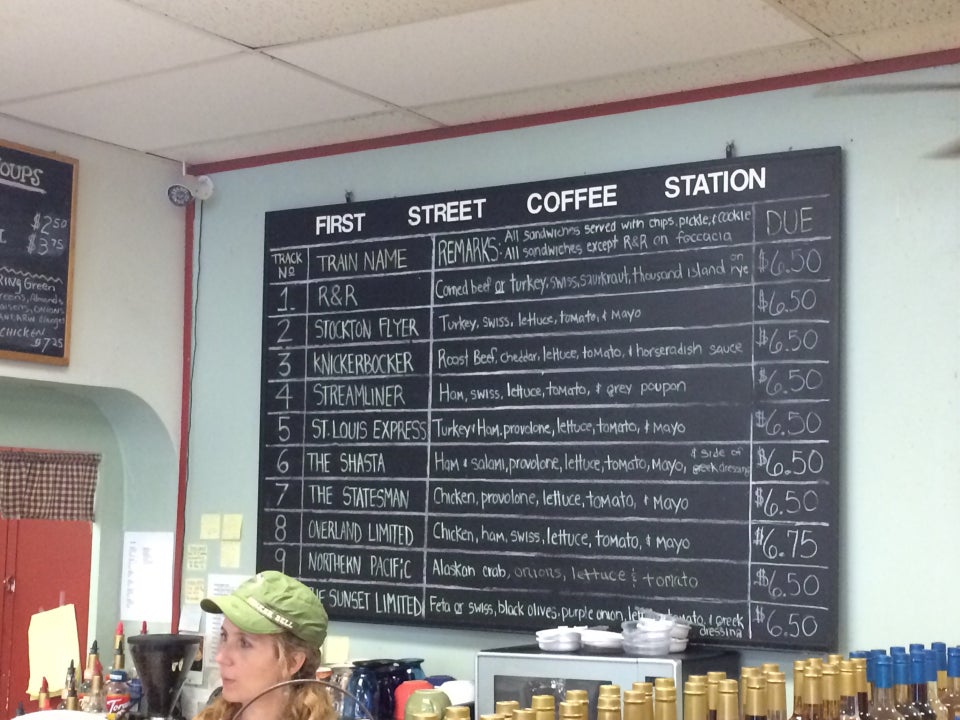 OUPS
$2.50
$3.75
RING Green
CHICKEN
$7.25
FIRST STREET COFFEE STATION
TRACK No TRAIN NAME REMARKS: All sandwiches served with chips, pickle, & cookie DUE
All sandwiches except R&R on foccacia
1 R&R Corned beef or turkey, swiss, saurkraut, thousand island on rye $6.50
2 STOCKTON FLYER Turkey, swiss, lettuce, tomato, & mayo $6.50
3 KNICKERBOCKER Roast Beef, cheddar, lettuce, tomato, & horseradish sauce $6.50
4 STREAMLINER Ham, swiss, lettuce, tomato, & grey poupon $6.50
5 ST. LOUIS EXPRESS Turkey & Ham, provolone, lettuce, tomato, & mayo $6.50
6 THE SHASTA Ham & salami, provolone, lettuce, tomato, mayo, & side of greek dressing $6.50
7 THE STATESMAN Chicken, provolone, lettuce, tomato, & mayo $6.50
8 OVERLAND LIMITED Chicken, ham, swiss, lettuce, tomato, & mayo $6.75
9 NORTHERN PACIFIC Alaskan crab, onions, lettuce & tomato $6.50
THE SUNSET LIMITED Feta or swiss, black olives, purple onion, lettuce, tomato, & greek dressing $6.50